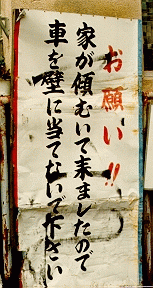 お願い!!
家が傾むいて来ましたので
車を壁に当てないで下さい